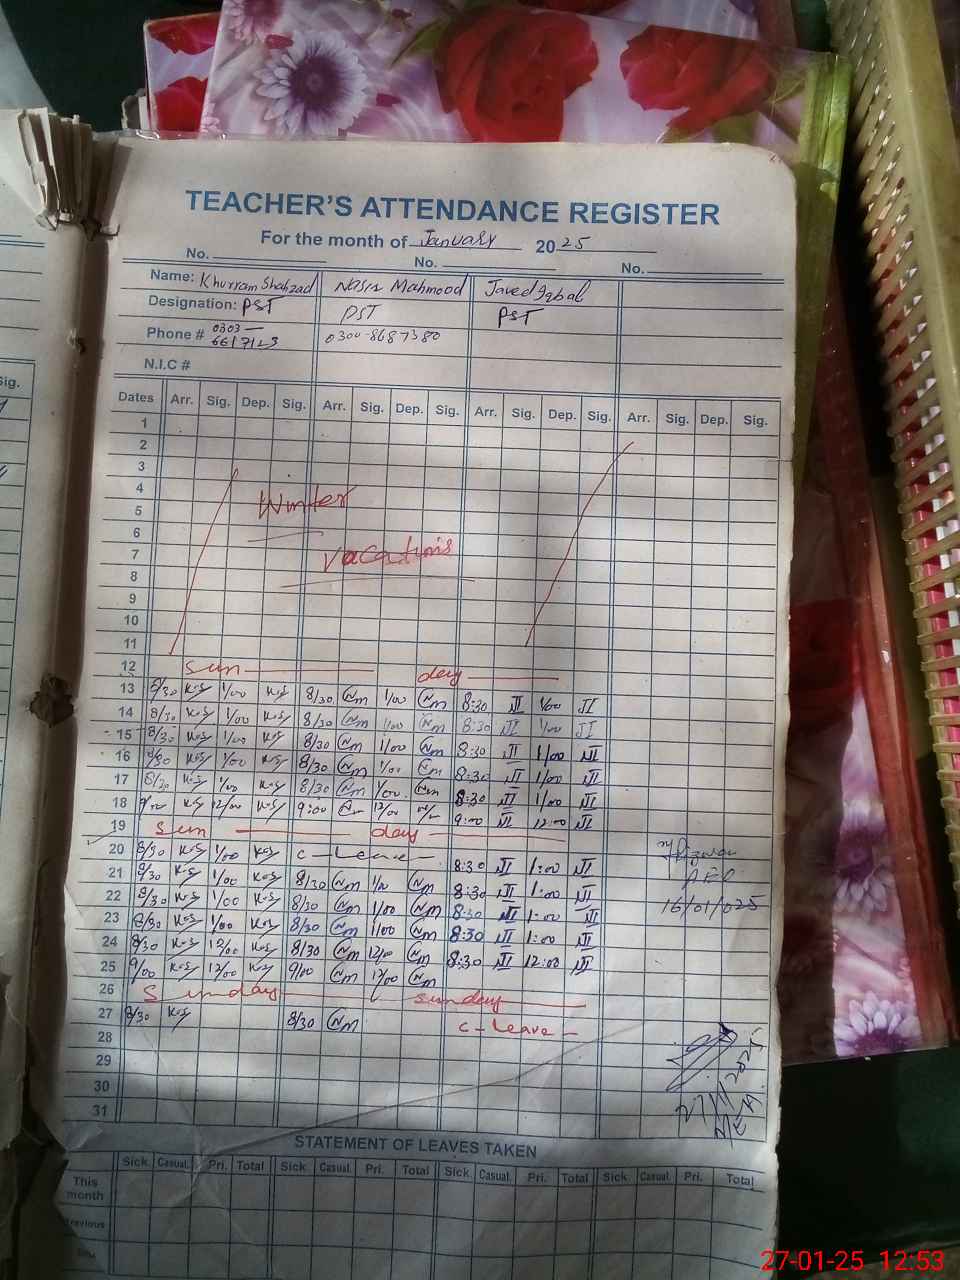 TEACHER'S ATTENDANCE REGISTER
For the month of January 2025
No. No. No.
Name: Khurram Shahzad Nasir Mahmood Javed Iqbal
Designation: PST PST PST
Phone # 0303- 6617123 0300-8687380
N.I.C #
Sig.
Dates Arr. Sig. Dep. Sig. Arr. Sig. Dep. Sig. Arr. Sig. Dep. Sig. Arr. Sig. Dep. Sig.
1
2
3
4 Winter
5
6
7 vacations
8
9
10
11
12 Sun day
13 8/30 K.S 1/00 K.S 8/30 Nm 1/00 Nm 8:30 JI 1/00 JI
14 8/30 K.S 1/00 K.S 8/30 Nm 1/00 Nm 8:30 JI 1/00 JI
15 8/30 K.S 1/00 K.S 8/30 Nm 1/00 Nm 8:30 JI 1/00 JI
16 8/30 K.S 1/00 K.S 8/30 Nm 1/00 Nm 8:30 JI 1/00 JI
17 8/30 K.S 1/00 K.S 8/30 Nm 1/00 Nm 8:30 JI 1/00 JI
18 K.S 12/00 K.S 9:00 12/00 9:00 JI 12:00 JI
19 Sun day
20 8/30 K.S 1/00 K.S C-Leave- 8:30 JI 1:00 JI
21 8/30 K.S 1/00 K.S 8/30 Nm Nm 8:30 JI 1:00 JI
22 8/30 K.S 1/00 K.S 8/30 Nm 1/00 Nm 8:30 JI 1:00 JI 16/01/025
23 8/30 K.S 1/00 K.S 8/30 Nm 1/00 Nm 8:30 JI 1:00 JI
24 8/30 K.S 12/00 K.S 8/30 Nm 12/00 Nm 8:30 JI 12:00 JI
25 9/00 K.S 12/00 K.S 9/00 Nm 12/00 Nm
26 Sunday Sunday
27 8/30 K.S 8/30 Nm C-Leave-
28
29
30
31 27/1/2025
STATEMENT OF LEAVES TAKEN
Sick. Casual. Pri. Total Sick. Casual. Pri. Total Sick. Casual. Pri. Total Sick. Casual. Pri. Total
This month
27-01-25 12:53